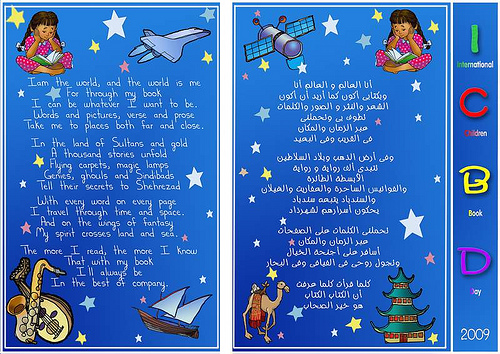 Iam the world, and the world is me
For through my book
I can be whatever I want to be.
Words and pictures, verse and prose
Take me to places both far and close.
In the land of Sultans and gold
A thousand stories untold
Flying carpets, magic lamps
Genies, ghouls and Sindibads
Tell their secrets to Shehrezad
With every word on every page
I travel through time and space.
And on the wings of fantasy
My spirit crosses land and sea.
The more I read, the more I know
That with my book
I ll always be
In the best of company.
أنا العالم و العالم أنا
وبكتابي أكون كما أريد أن أكون
الشعر والنثر و الصور والكلمات
تطوف بي وتحملني
عبر الزمان والمكان
في القريب وفي البعيد
وفي أرض الذهب وبلاد السلاطين
تبدي ألف رواية و رواية
الأبسطة الطائرة
والفوانيس الساحرة والعفاريت والغيلان
والسندباد يتبعه سندباد
يحكون أسرارهم لشهرزاد
تحملني الكلمات على الصفحات
عبر الزمان والمكان
أسافر على أجنحة الخيال
وتجول روحي في الفيافي وفي البحار
كلما قرأت كلما عرفت
أن الكتاب الكتاب
هو خير الصحاب
I
International
C
Children
B
Book
D
Day
2009